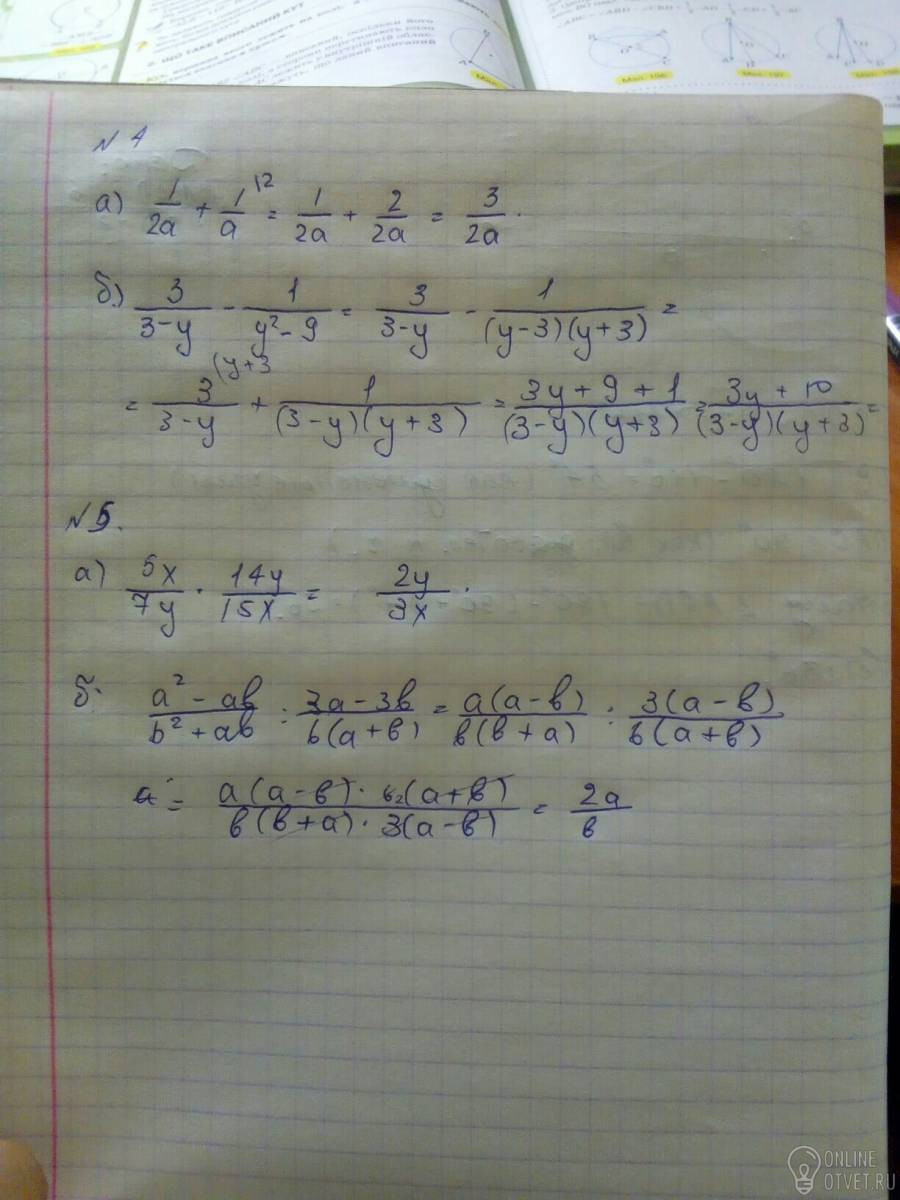 2. ЩО ТАКЕ ВПИСАНИЙ КУТ
Мал. 196
Мал. 197
№ 4
а) 1/2a + 1/a |2 = 1/2a + 2/2a = 3/2a .
б.) 3/(3-y) - 1/(y²-9) = 3/(3-y) - 1/((y-3)(y+3)) =
= 3/(3-y) (y+3 + 1/((3-y)(y+3)) = (3y+9+1)/((3-y)(y+3)) = (3y+10)/((3-y)(y+3)) =
№ 5.
а) 5x/7y · 14y/15x = 2y/3x .
б. (a²-ab)/(b²+ab) : (3a-3b)/(6(a+b)) = a(a-b)/(b(b+a)) : 3(a-b)/(6(a+b))
= (a(a-b) · 6 2(a+b))/(b(b+a) · 3(a-b)) = 2a/b
ONLINE
OTVET.RU